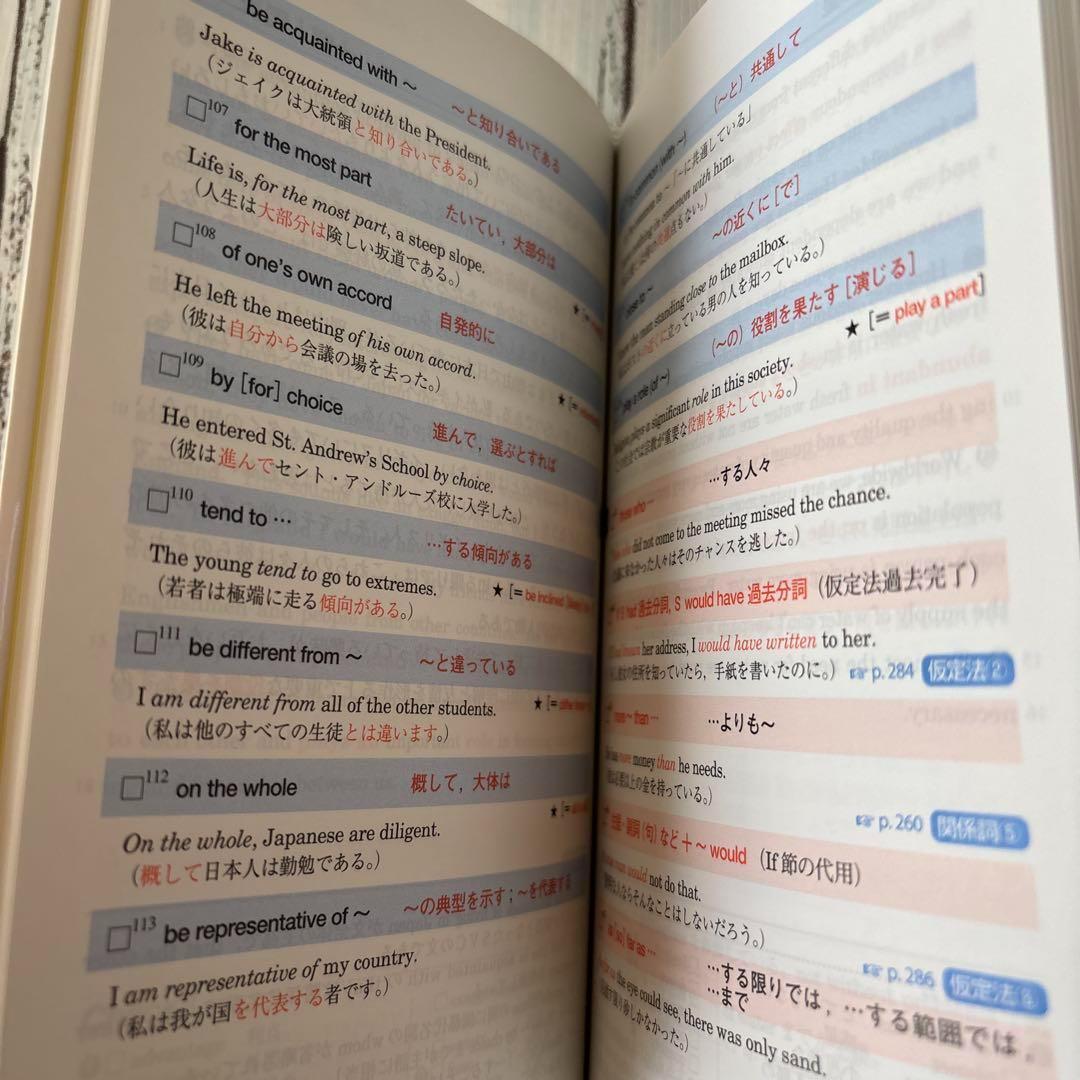 be acquainted with ～ ～と知り合いである
Jake is acquainted with the President.
（ジェイクは大統領と知り合いである。）
□107 for the most part たいてい，大部分は
Life is, for the most part, a steep slope.
（人生は大部分は険しい坂道である。）
□108 of one's own accord 自発的に
He left the meeting of his own accord. ★ [=
（彼は自分から会議の場を去った。）
□109 by [for] choice 進んで，選ぶとすれば
He entered St. Andrew's School by choice.
（彼は進んでセント・アンドルーズ校に入学した。）
□110 tend to … …する傾向がある
The young tend to go to extremes. ★ [= be inclined
（若者は極端に走る傾向がある。）
□111 be different from ～ ～と違っている
I am different from all of the other students. ★ [=
（私は他のすべての生徒とは違います。）
□112 on the whole 概して，大体は
On the whole, Japanese are diligent. ★ [=
（概して日本人は勤勉である。）
□113 be representative of ～ ～の典型を示す；～を代表する
I am representative of my country.
（私は我が国を代表する者です。）
common (with ～) （～と）共通して
common to ～「～に共通している」
in common with him.
点もない。）
close to ～ ～の近くに［で］
the man standing close to the mailbox.
の近くに立っている男の人を知っている。）
play a role (of ～) （～の）役割を果たす［演じる］
★ [= play a part]
plays a significant role in this society.
社会では宗教が重要な役割を果たしている。）
those who … …する人々
who did not come to the meeting missed the chance.
なかった人々はそのチャンスを逃した。）
had 過去分詞, S would have 過去分詞（仮定法過去完了）
her address, I would have written to her.
彼女の住所を知っていたら，手紙を書いたのに。） ☞ p.284 仮定法②
more ～ than … …よりも～
more money than he needs.
必要以上の金を持っている。）
☞ p.260 関係詞⑤
副詞（句）など＋～ would（If 節の代用）
would not do that.
ならそんなことはしないだろう。）
☞ p.286 仮定法④
as [so] far as … …する限りでは，…する範囲では，
…まで
the eye could see, there was only sand.
しかなかった。）